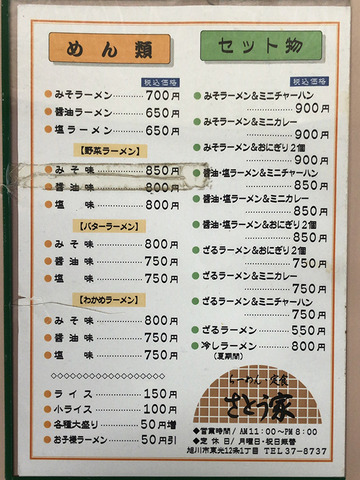 めん類
税込価格
みそラーメン………700円
醤油ラーメン………650円
塩ラーメン…………650円
【野菜ラーメン】
みそ味…………850円
醤油味…………800円
塩味…………800円
【バターラーメン】
みそ味…………800円
醤油味…………750円
塩味…………750円
【わかめラーメン】
みそ味…………800円
醤油味…………750円
塩味…………750円
ライス…………150円
小ライス…………100円
各種大盛り……50円増
お子様ラーメン…50円引
セット物
税込価格
みそラーメン&ミニチャーハン
…………900円
みそラーメン&ミニカレー
…………900円
みそラーメン&おにぎり2個
…………900円
醤油・塩ラーメン&ミニチャーハン
…………850円
醤油・塩ラーメン&ミニカレー
…………850円
醤油・塩ラーメン&おにぎり2個
…………850円
ざるラーメン&おにぎり2個
…………750円
ざるラーメン&ミニカレー
…………750円
ざるラーメン&ミニチャーハン
…………750円
ざるラーメン………550円
冷しラーメン………800円
(夏期間)
らーめん・定食
さとう家
◆営業時間/AM11:00〜PM8:00
◆定休日/月曜日・祝日振替
旭川市東光12条1丁目 TEL37-8737